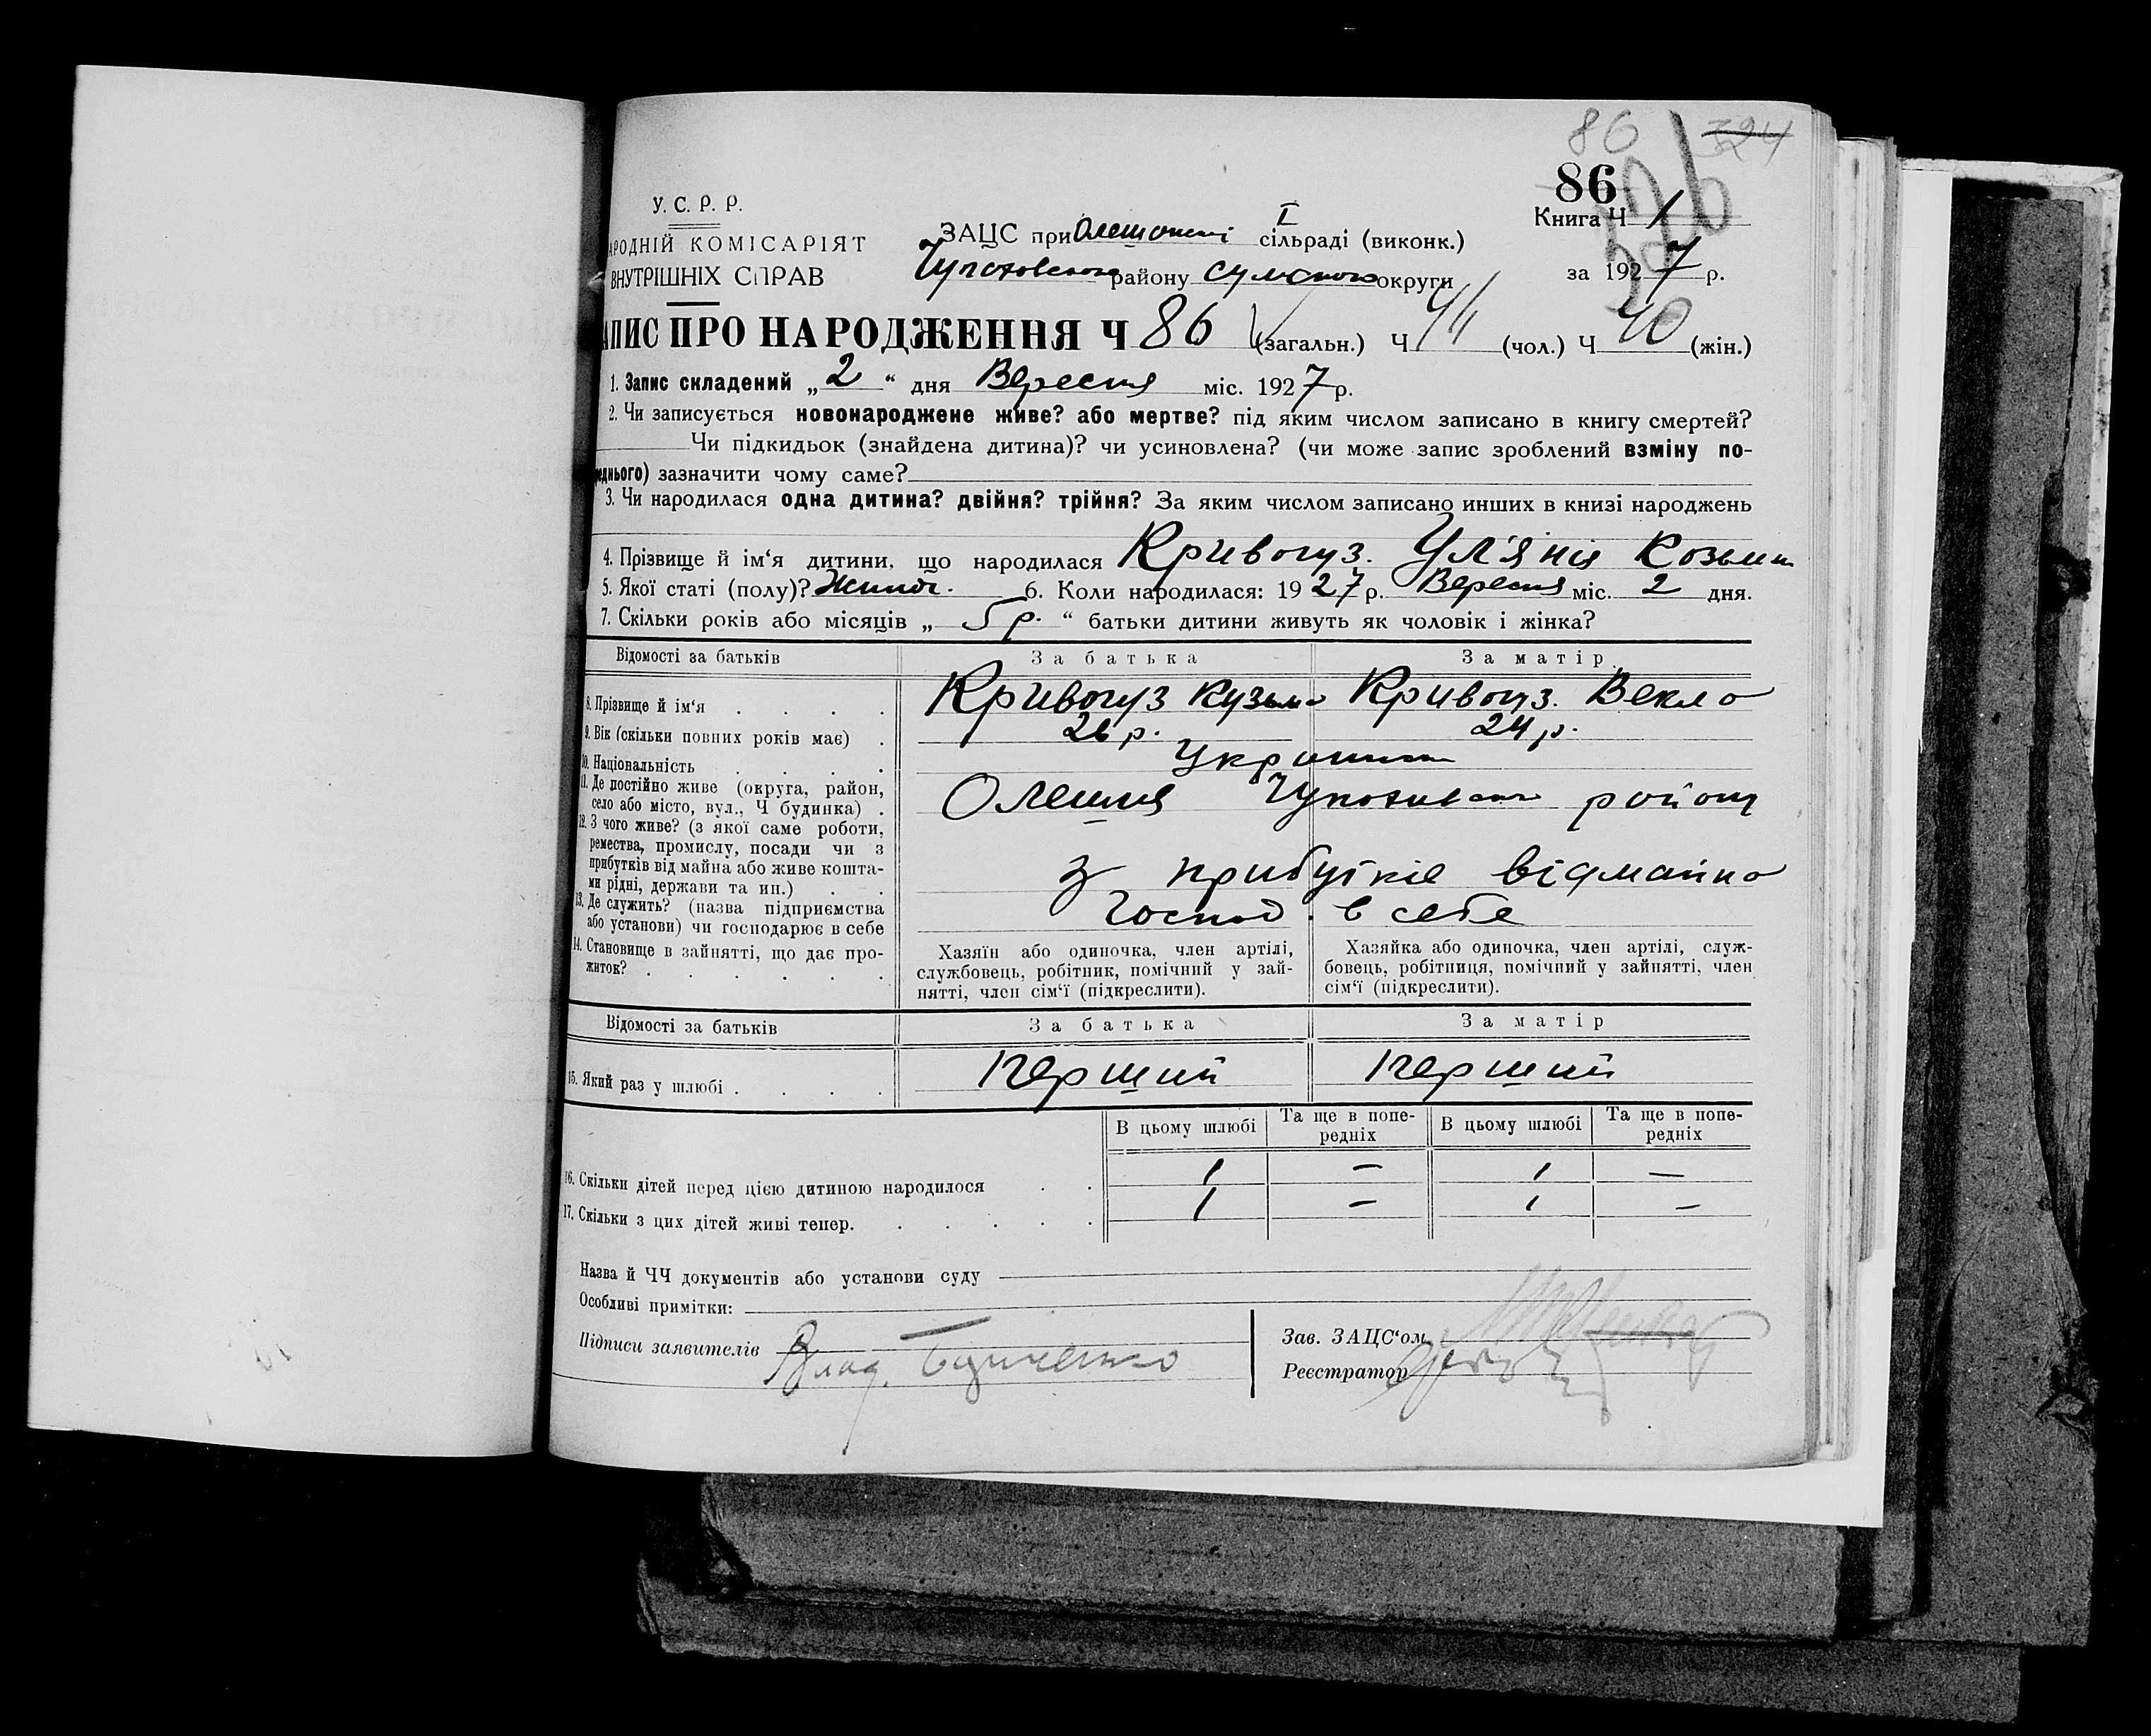 86 324
86
У. С. Р. Р.
Книга Ч 1
АРОДНІЙ КОМІСАРІЯТ
ЗАЦС при I сільраді (виконк.)
ВНУТРІШНІХ СПРАВ
району Сумского округи
за 1927 р.
АПИС ПРО НАРОДЖЕННЯ Ч 86 (загальн.) Ч (чол.) Ч 40 (жін.)
1. Запис складений „ 2 “ дня Вересня міс. 1927 р.
2. Чи записується новонароджене живе? або мертве? під яким числом записано в книгу смертей?
Чи підкидьок (знайдена дитина)? чи усиновлена? (чи може запис зроблений взміну по-
реднього) зазначити чому саме?
3. Чи народилася одна дитина? двійня? трійня? За яким числом записано инших в книзі народжень
4. Прізвище й ім‘я дитини, що народилася Кривогуз.
5. Якої статі (полу)? 6. Коли народилася: 1927 р. Вересня міс. 2 дня.
7. Скільки років або місяців „ 5 р. “ батьки дитини живуть як чоловік і жінка?
Відомості за батьків За батька За матір
8. Прізвище й ім‘я Кривогуз Кузьма Кривогуз. Векла
9. Вік (скільки повних років має) 26 р. 24 р.
10. Національність
11. Де постійно живе (округа, район,
село або місто, вул., Ч будинка) Олешня район
12. З чого живе? (з якої саме роботи,
ремества, промислу, посади чи з
прибутків від майна або живе кошта-
ми рідні, держави та ин.) з прибутків відмайна
13. Де служить? (назва підприємства
або установи) чи господарює в себе Господ. в себе
14. Становище в зайнятті, що дає про-
житок?
Хазяїн або одиночка, член артілі,
службовець, робітник, помічний у зай-
нятті, член сім‘ї (підкреслити).
Хазяйка або одиночка, член артілі, служ-
бовець, робітниця, помічний у зайнятті, член
сім‘ї (підкреслити).
Відомості за батьків За батька За матір
15. Який раз у шлюбі Перший Перший
В цьому шлюбі Та ще в попе-
редніх В цьому шлюбі Та ще в попе-
редніх
16. Скільки дітей перед цією дитиною народилося 1 – 1 —
17. Скільки з цих дітей живі тепер. 1 – 1 –
Назва й ЧЧ документів або установи суду
Особливі примітки:
Підписи заявителів
Зав. ЗАЦС‘ом
Реєстратор